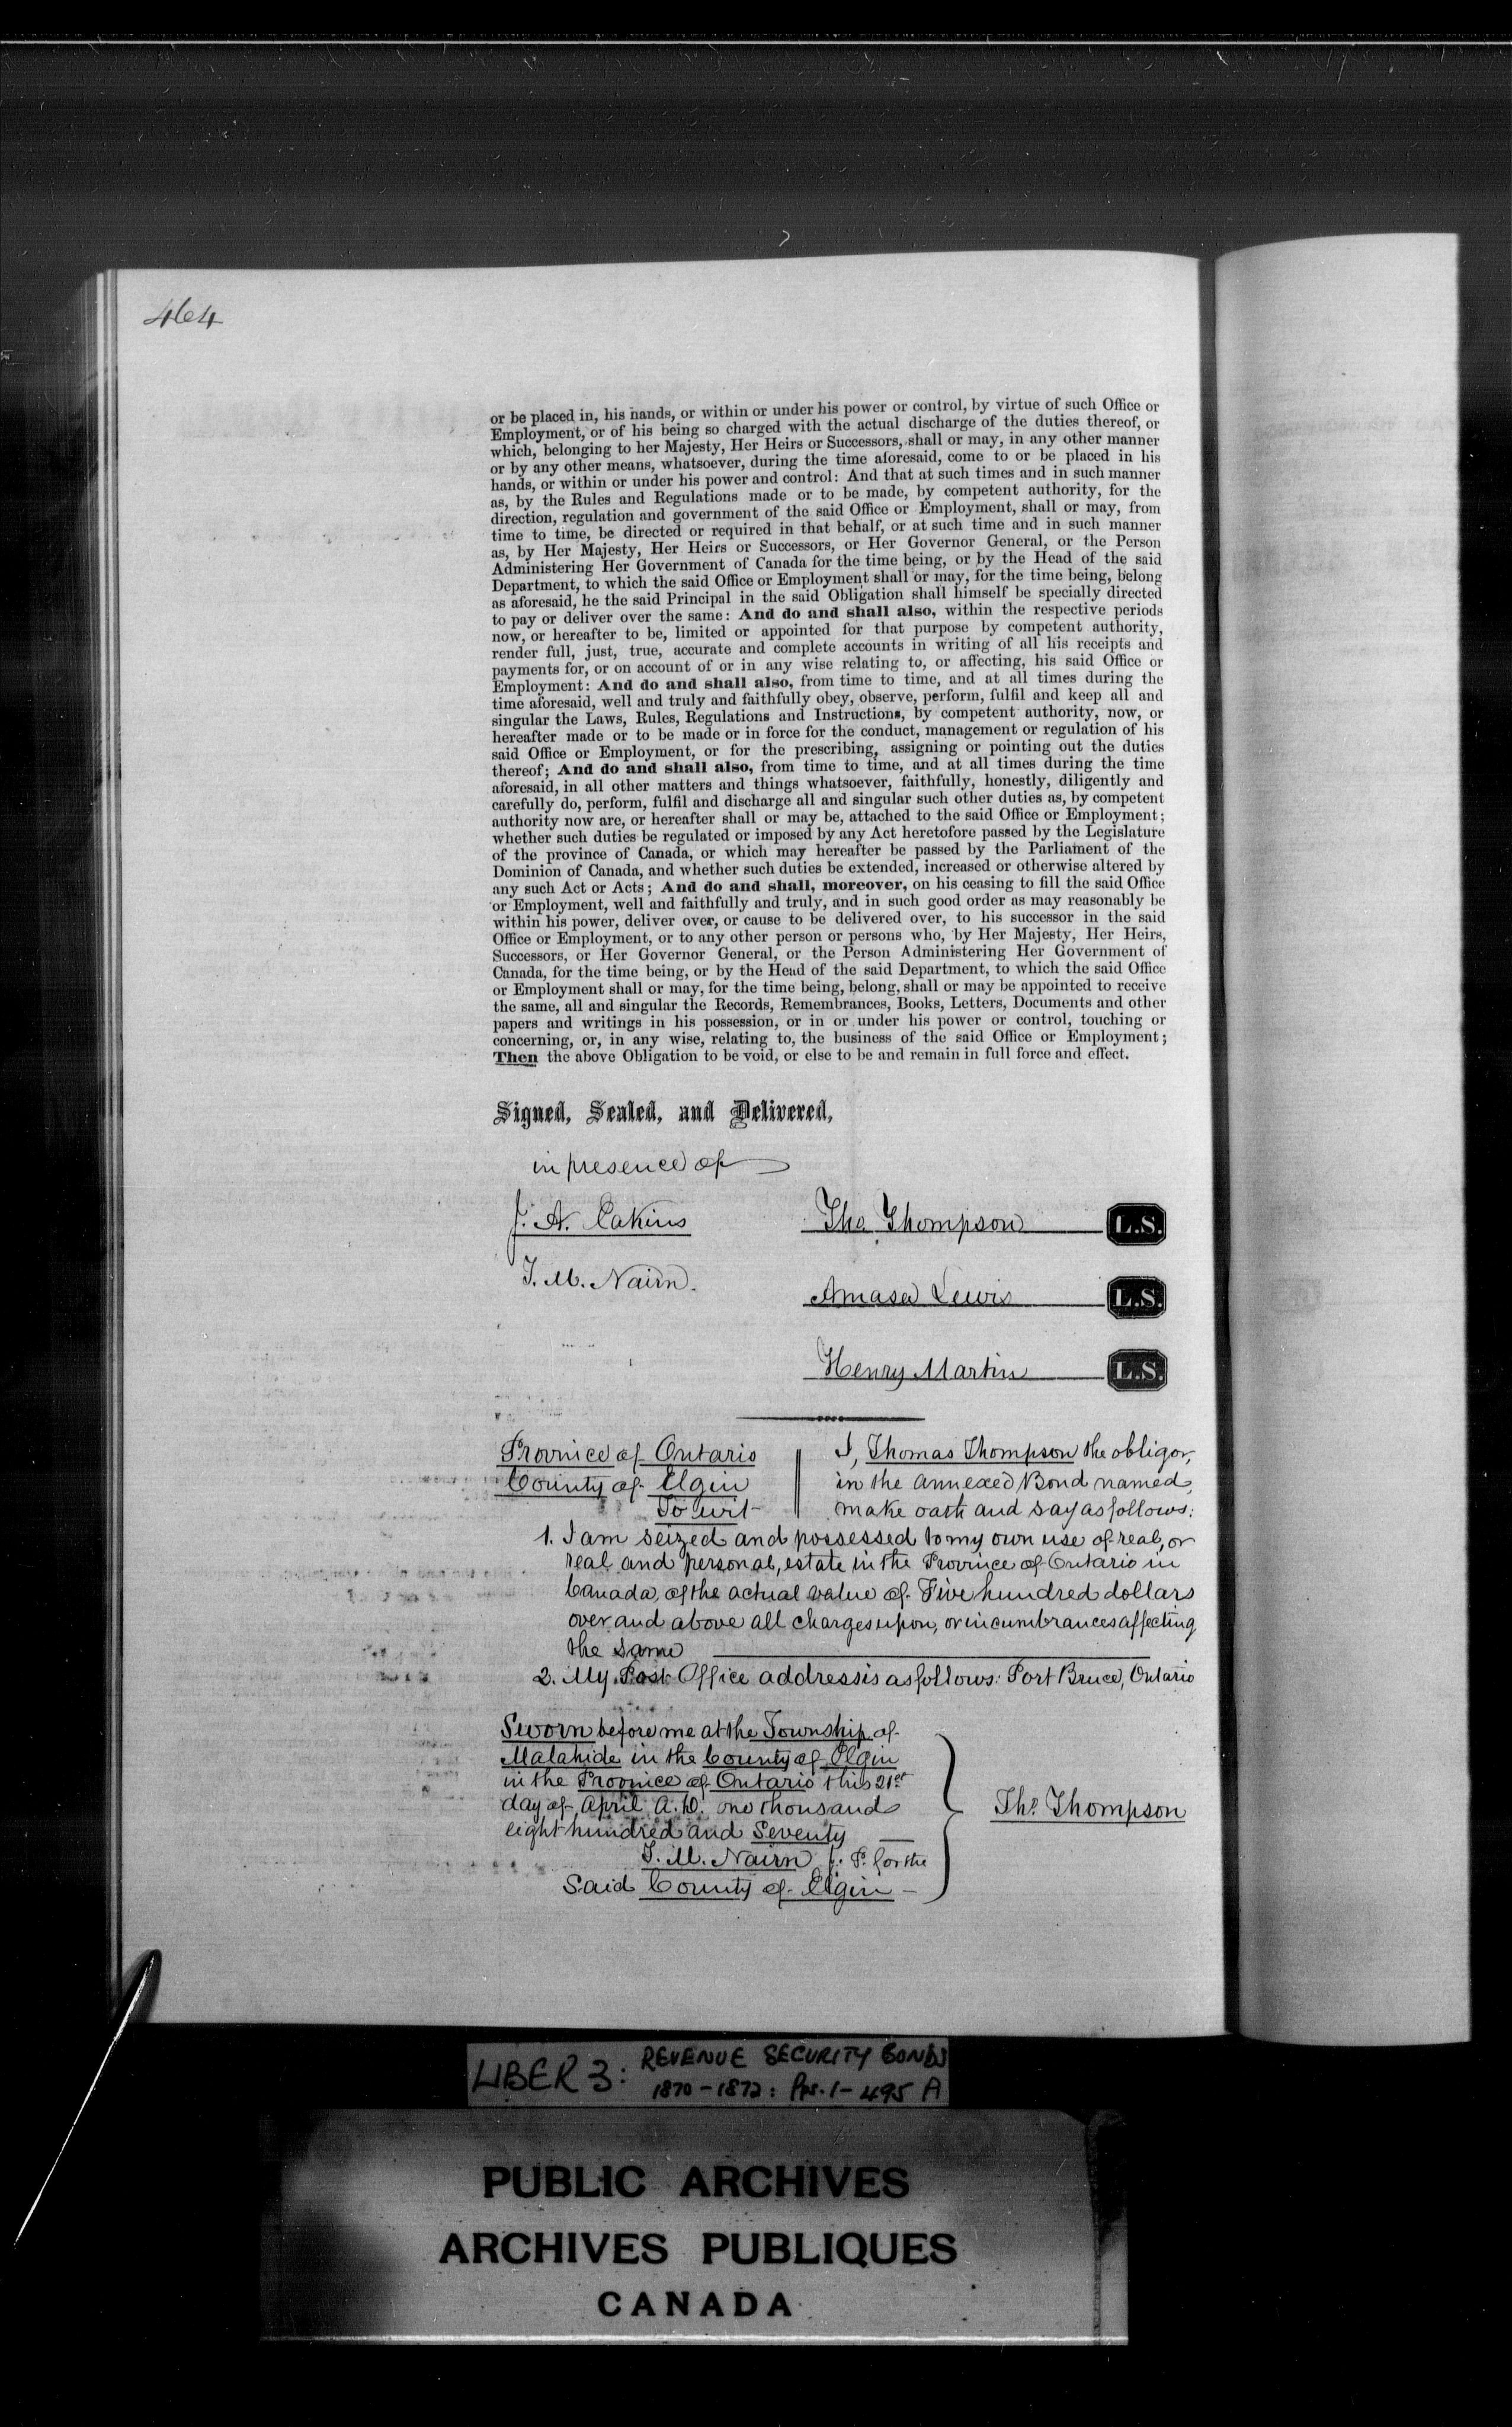 464
or be placed in, his hands, or within or under his power or control, by virtue of such Office or
Employment, or of his being so charged with the actual discharge of the duties thereof, or
which, belonging to her Majesty, Her Heirs or Successors, shall or may, in any other manner
or by any other means, whatsoever, during the time aforesaid, come to or be placed in his
hands, or within or under his power and control: And that at such times and in such manner
as, by the Rules and Regulations made or to be made, by competent authority, for the
direction, regulation and government of the said Office or Employment, shall or may, from
time to time, be directed or required in that behalf, or at such time and in such manner
as, by Her Majesty, Her Heirs or Successors, or Her Governor General, or the Person
Administering Her Government of Canada for the time being, or by the Head of the said
Department, to which the said Office or Employment shall or may, for the time being, belong
as aforesaid, he the said Principal in the said Obligation shall himself be specially directed
to pay or deliver over the same: And do and shall also, within the respective periods
now, or hereafter to be, limited or appointed for that purpose by competent authority,
render full, just, true, accurate and complete accounts in writing of all his receipts and
payments for, or on account of or in any wise relating to, or affecting, his said Office or
Employment: And do and shall also, from time to time, and at all times during the
time aforesaid, well and truly and faithfully obey, observe, perform, fulfil and keep all and
singular the Laws, Rules, Regulations and Instructions, by competent authority, now, or
hereafter made or to be made or in force for the conduct, management or regulation of his
said Office or Employment, or for the prescribing, assigning or pointing out the duties
thereof; And do and shall also, from time to time, and at all times during the time
aforesaid, in all other matters and things whatsoever, faithfully, honestly, diligently and
carefully do, perform, fulfil and discharge all and singular such other duties as, by competent
authority now are, or hereafter shall or may be, attached to the said Office or Employment;
whether such duties be regulated or imposed by any Act heretofore passed by the Legislature
of the province of Canada, or which may hereafter be passed by the Parliament of the
Dominion of Canada, and whether such duties be extended, increased or otherwise altered by
any such Act or Acts; And do and shall, moreover, on his ceasing to fill the said Office
or Employment, well and faithfully and truly, and in such good order as may reasonably be
within his power, deliver over, or cause to be delivered over, to his successor in the said
Office or Employment, or to any other person or persons who, by Her Majesty, Her Heirs,
Successors, or Her Governor General, or the Person Administering Her Government of
Canada, for the time being, or by the Head of the said Department, to which the said Office
or Employment shall or may, for the time being, belong, shall or may be appointed to receive
the same, all and singular the Records, Remembrances, Books, Letters, Documents and other
papers and writings in his possession, or in or under his power or control, touching or
concerning, or, in any wise, relating to, the business of the said Office or Employment;
Then the above Obligation to be void, or else to be and remain in full force and effect.
Signed, Sealed, and Delivered,
in presence of
J. A. Eakins Tho. Thompson L.S.
T. M. Nairn. Amasa Lewis L.S.
Henry Martin L.S.
Province of Ontario
County of Elgin
To wit
I, Thomas Thompson the obligor,
in the annexed Bond named,
make oath and say as follows:
1. I am seized and possessed to my own use of real, or
real and personal, estate in the Province of Ontario in
Canada, of the actual value of Five hundred dollars
over and above all charges upon, or incumbrances affecting
the same
2. My Post Office address is as follows: Port Bruce, Ontario
Sworn before me at the Township of
Malahide in the County of Elgin
in the Province of Ontario this 21st
day of April A.D. one thousand
eight hundred and Seventy
T. M. Nairn J. P. for the
Said County of Elgin
Tho. Thompson
LIBER 3: REVENUE SECURITY BONDS
1870-1872: Pps. 1-495 A
PUBLIC ARCHIVES
ARCHIVES PUBLIQUES
CANADA